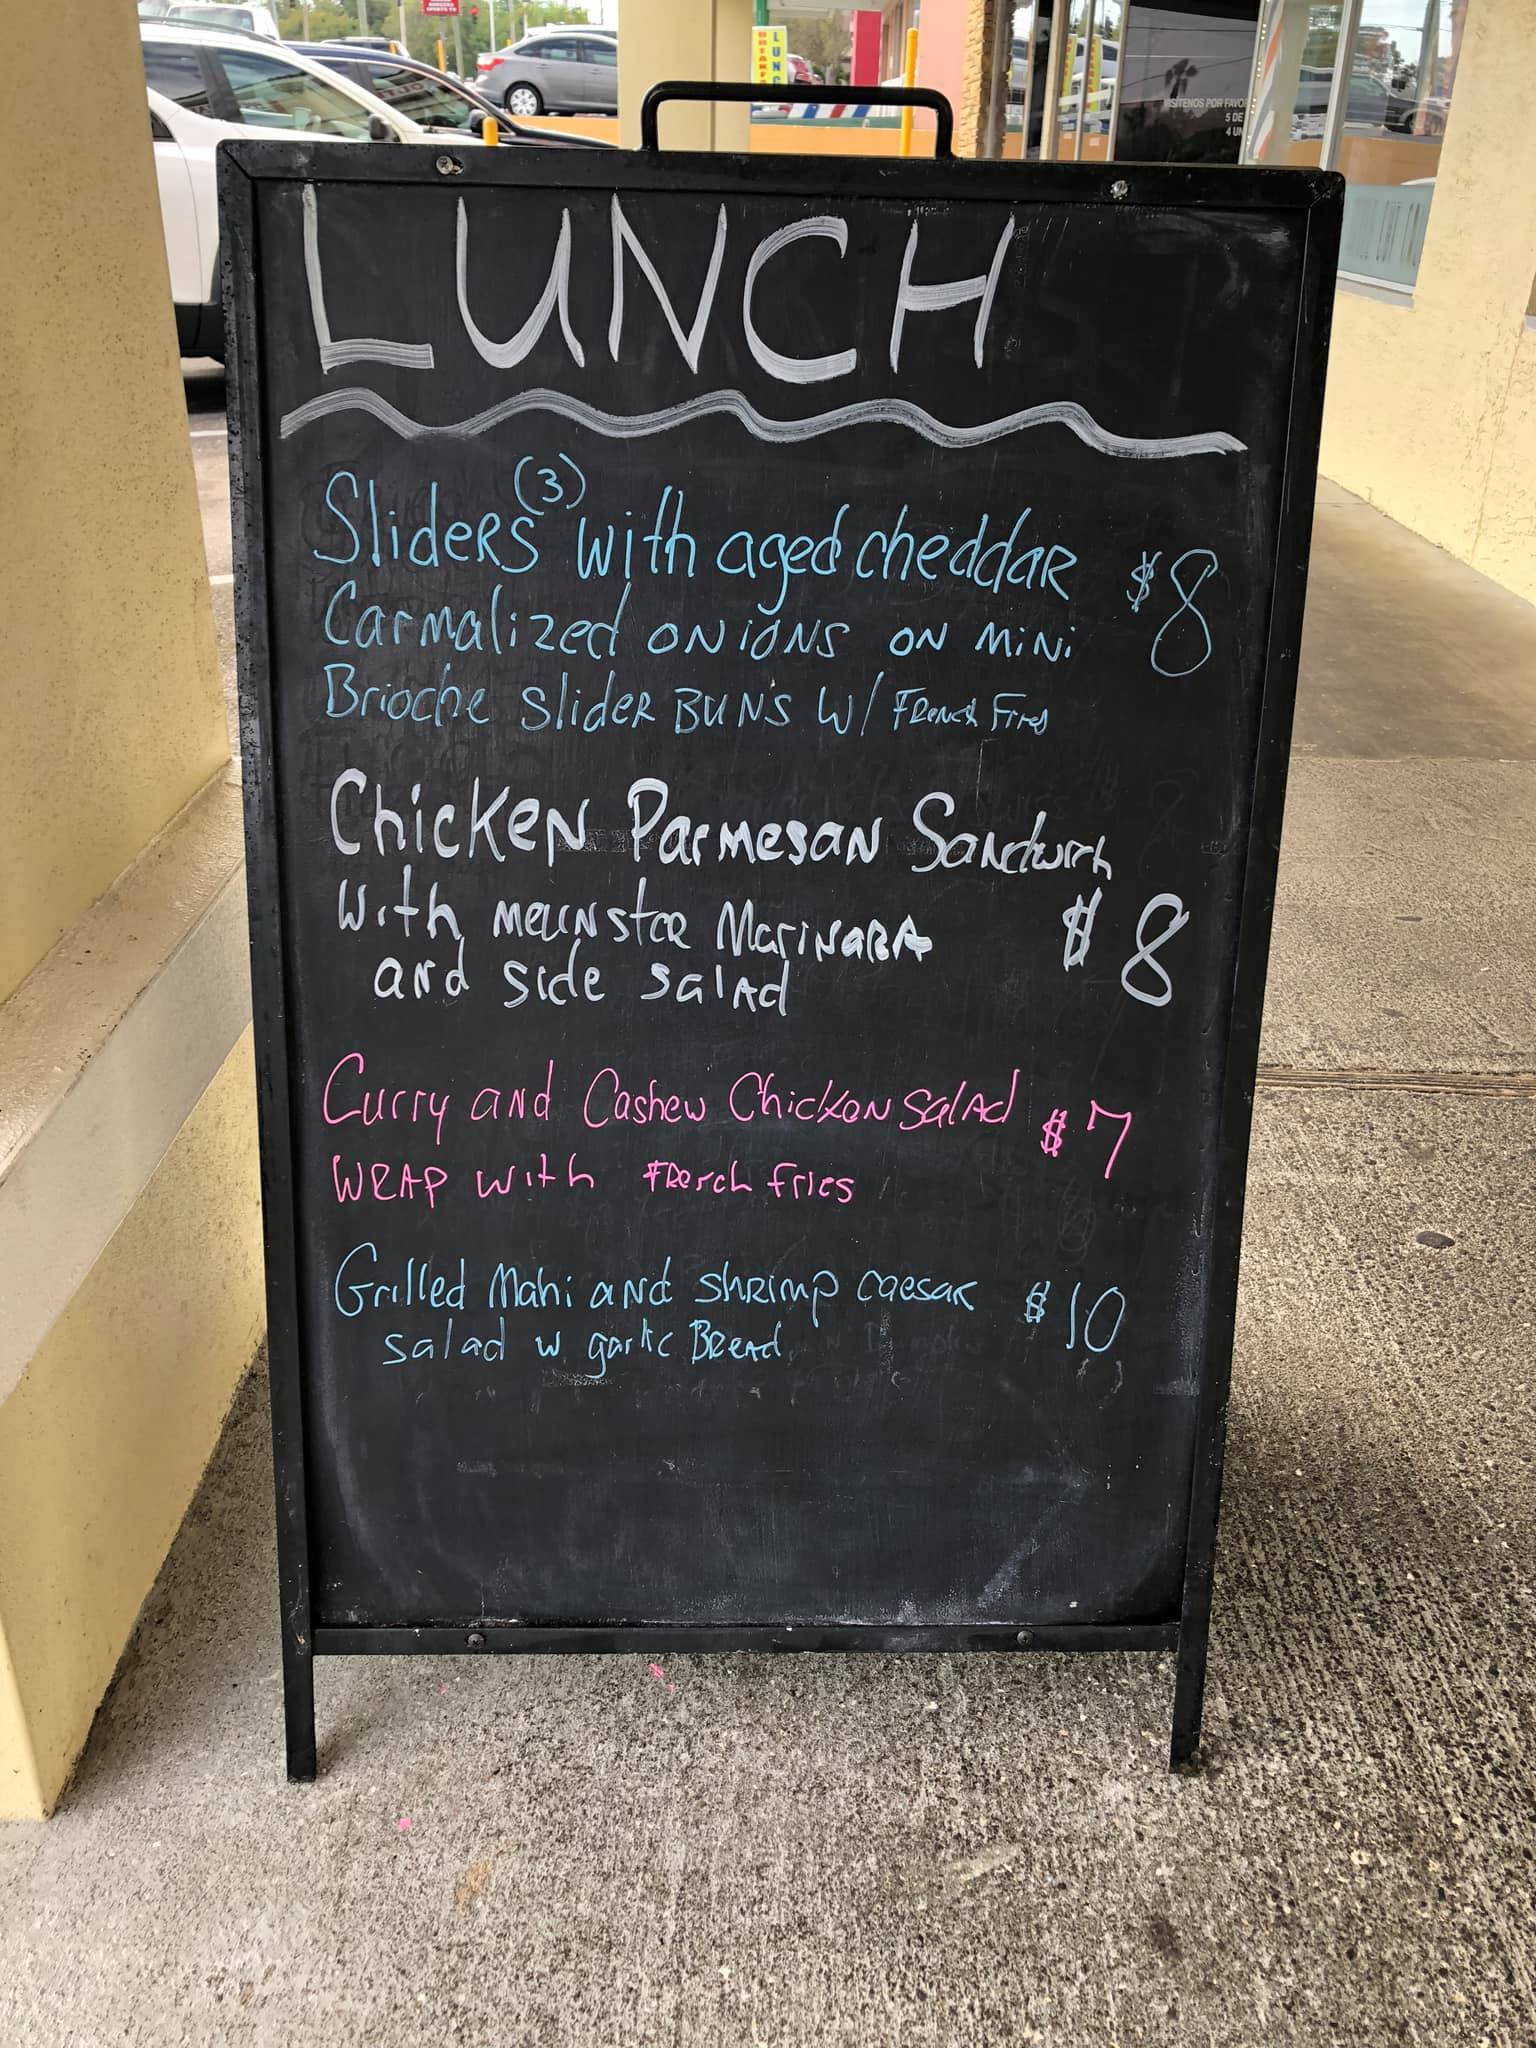 LUNCH
LUNCH
BREAKFA
VISITENOS POR FAVO
5 DE
4 UN
(3)
Sliders with aged cheddar $8
Carmalized onions on mini
Brioche slider Buns w/ French Fries
Chicken Parmesan Sandwich
with meunster Marinara $8
and side salad
Curry and Cashew Chicken salad $7
wrap with French fries
Grilled Mahi and shrimp caesar $10
salad w garlic Bread